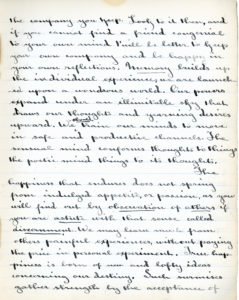 the company you keep. Look to it then, and
if you cannot find a friend congenial
to your own mind t'will be better to keep
your own company and be happy in
your own reflections. Memory builds up
the individual experience, we are launch-
ed upon a wondrous world. Our powers
expand under an illimitable sky that
draws our thoughts and yearning desires
upward. We train our minds to move
in safe and productive channels. The
sensual mind conforms thoughts to things
the poetic mind things to its thoughts.
The
happiness that endures does not spring
from indulged appetite, or passion, as you
will find out by observation of others if
you are astute with that sense called
discernment. We may learn much from
others painful experiences, without paying
the price in personal experiment. True hap-
piness is born of our and lofty ideas
concerning our destiny. Such surmises
gather strength by the acceptance of